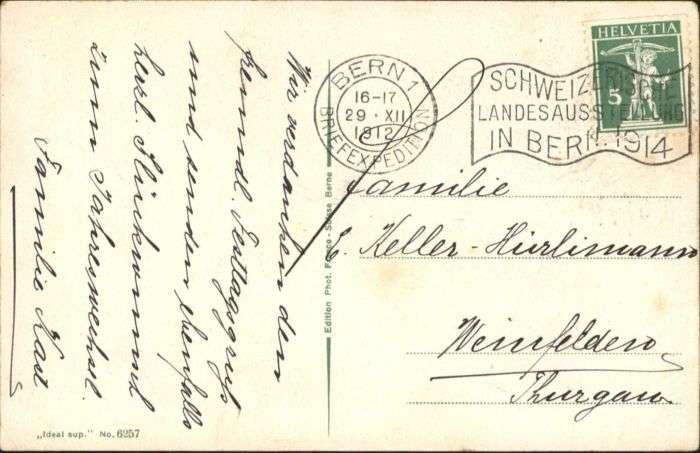 Wir verdanken den
freundl. Festtagsgruß
und senden ebenfalls
herzl. Glückwunsch
zum Jahreswechsel.
Familie Kast
Edition Phot. Franco-Suisse Berne
„Ideal sup.” No. 6257
BERN 1
16-17
29. XII
1912
BRIEFEXPEDITION
SCHWEIZERISCHE
LANDESAUSSTELLUNG
IN BERN. 1914
HELVETIA
5
Familie
E. Keller-Hürlimann
Weinfelden
Thurgau